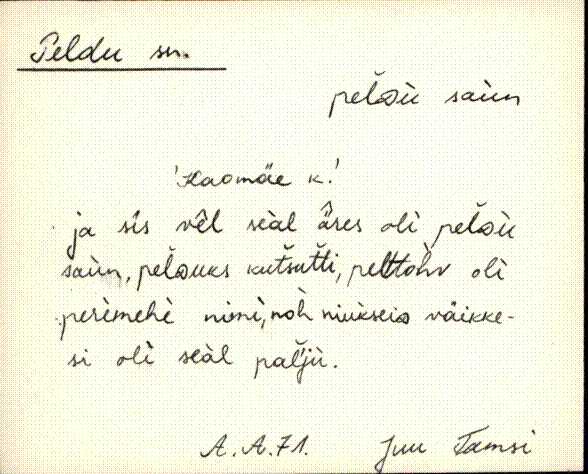 Peldu sn.
pelᴅù saùn
'Kaomäe k.'
ja sìs vêl seàl äres olì pelᴅù
saùn, pelᴅuks kutsutti, pelttohv olì
perèmehè nimì, nòh niùkseiᴅ väikke-
si olì seàl paljù.
A.A.71. Juu Tamsi